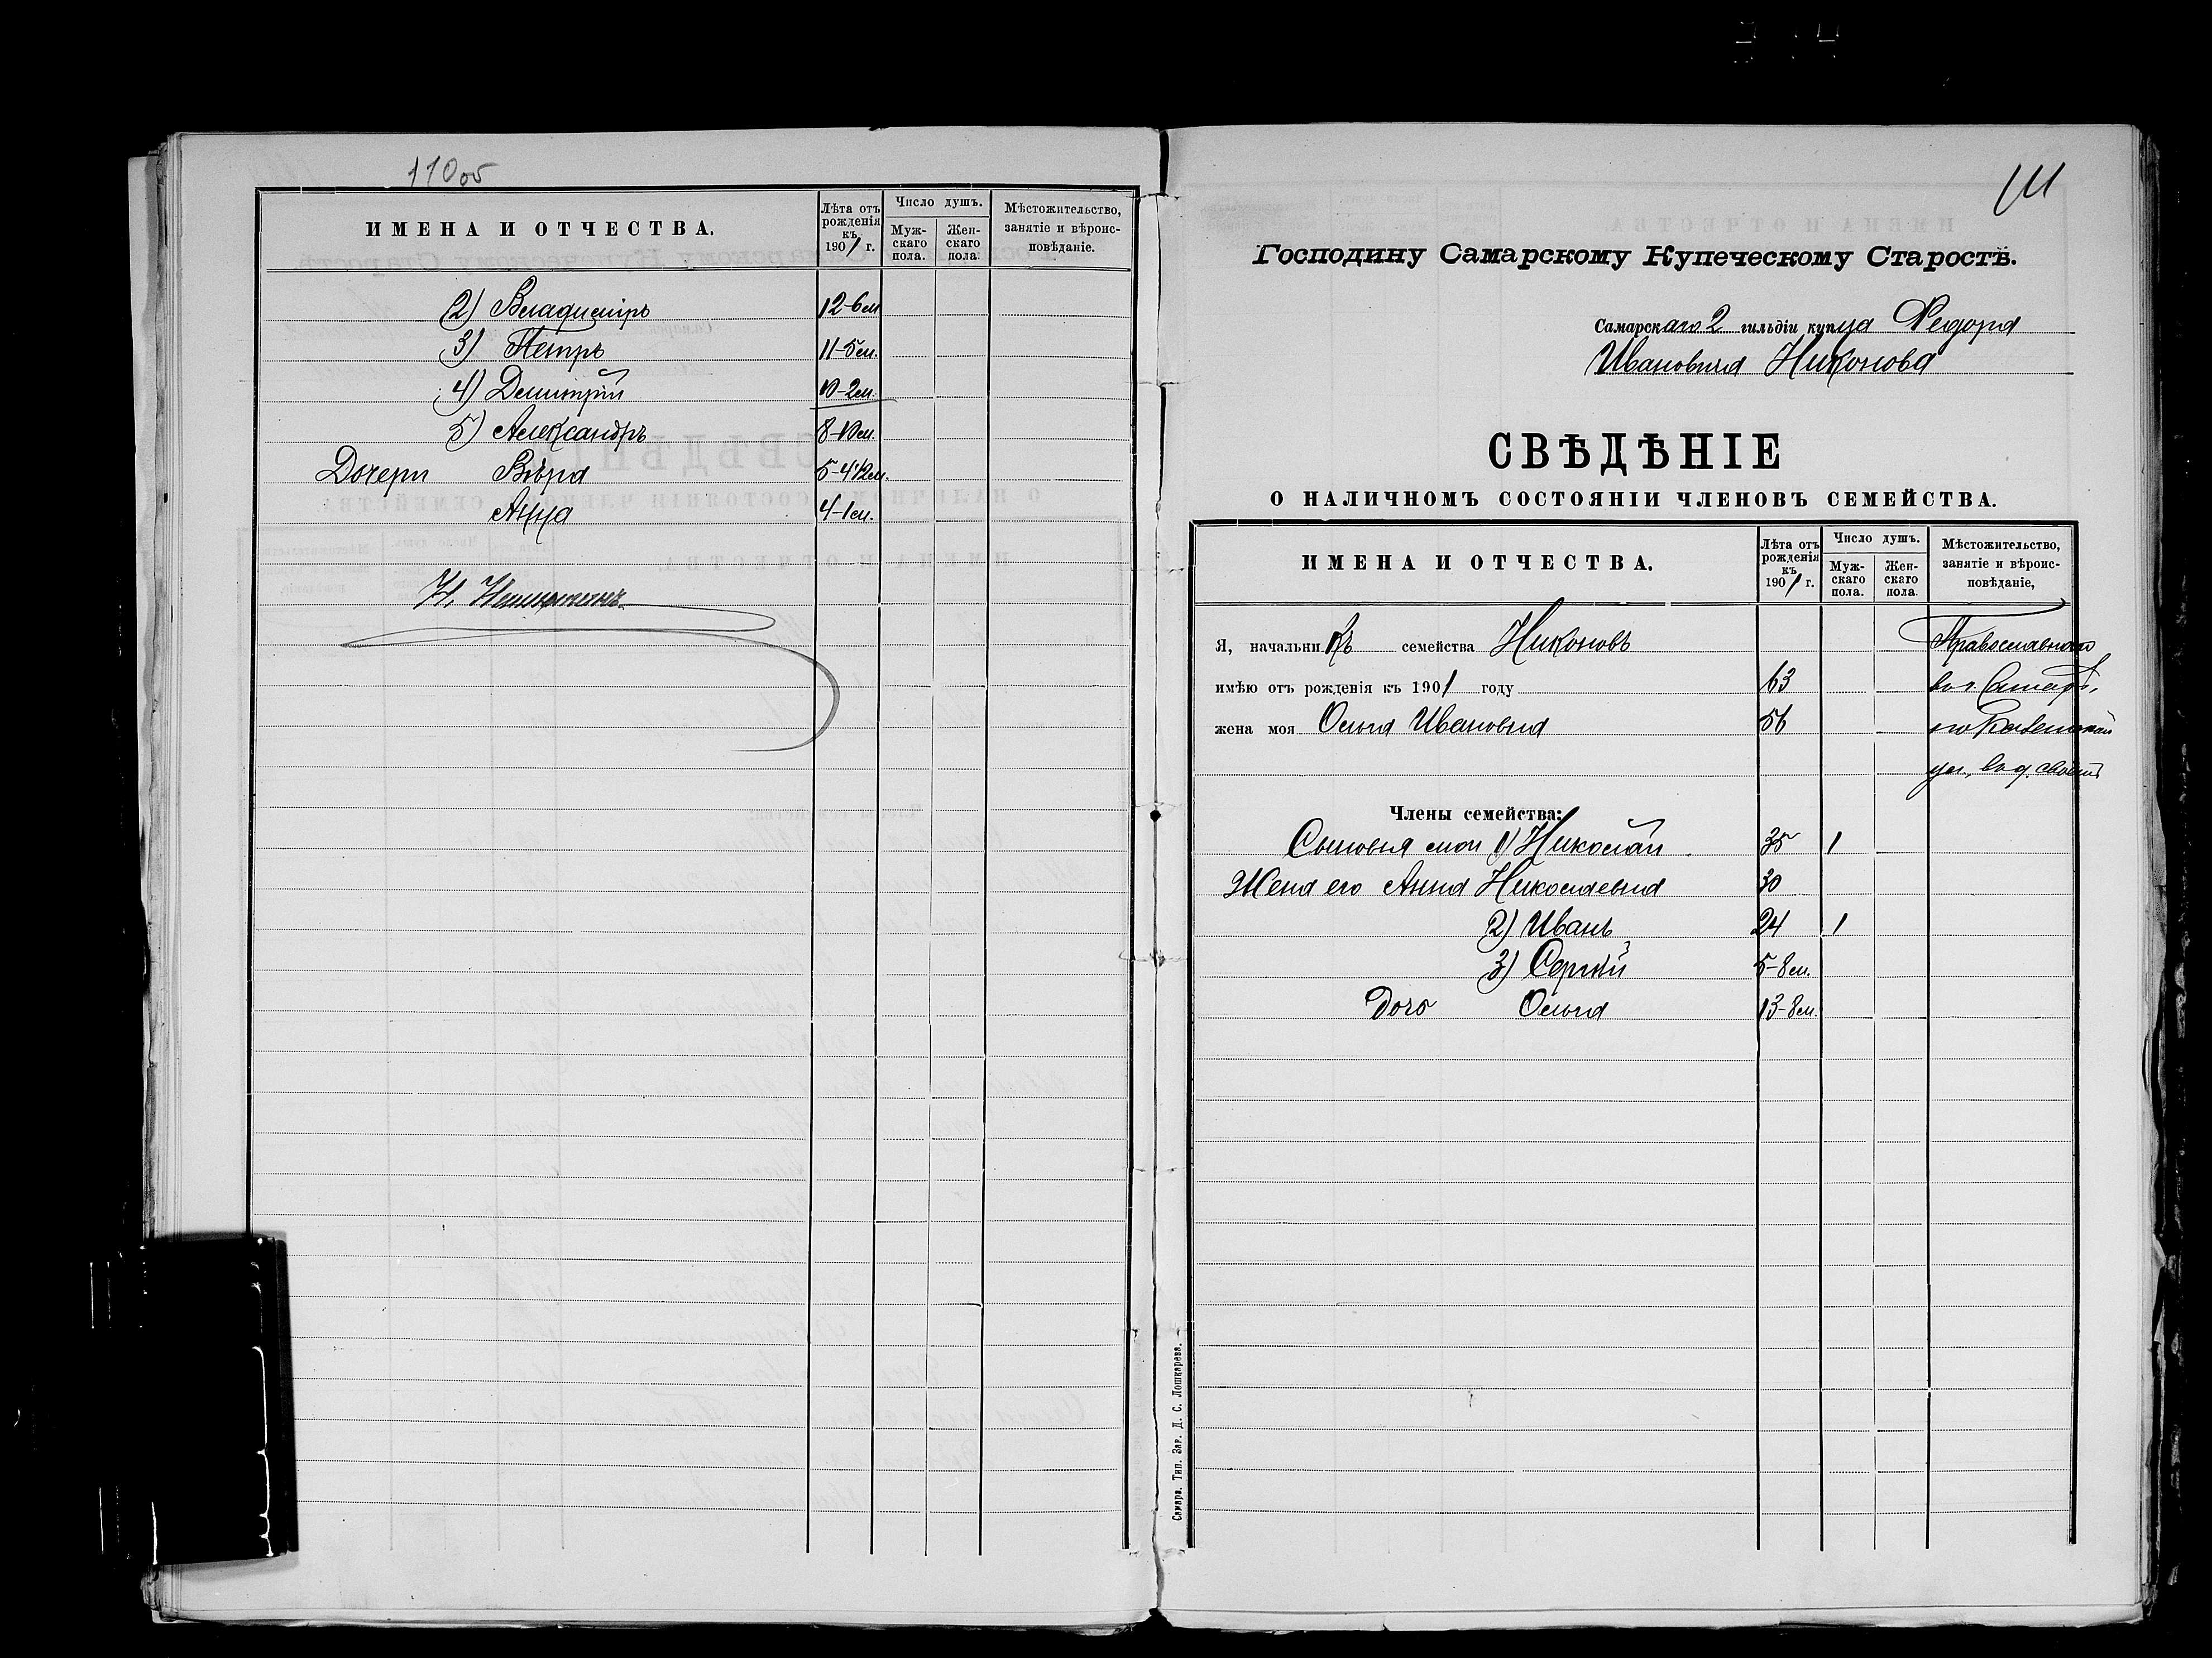 110об
ИМЕНА И ОТЧЕСТВА.
Лѣта отъ рожденія къ 1901 г.
Число душъ.
Мужскаго пола.
Женскаго пола.
Мѣстожительство, занятіе и вѣроисповѣданіе.
2) Владиміръ 12-6 м
3) Петръ 11-5 м.
4) Димитрій 10-2 м.
5) Александръ 8-10 м.
Дочери Вѣра 5-4 1/2 м.
Анна 4-1 м.
Н.
111
Господину Самарскому Купеческому Старостѣ.
Самарскаго 2 гильдіи купца Федора
Ивановича Никонова
СВѢДѢНІЕ
О НАЛИЧНОМЪ СОСТОЯНІИ ЧЛЕНОВЪ СЕМЕЙСТВА.
ИМЕНА И ОТЧЕСТВА.
Лѣта отъ рожденія къ 1901 г.
Число душъ.
Мужскаго пола.
Женскаго пола.
Мѣстожительство, занятіе и вѣроисповѣданіе,
Я, начальникъ семейства Никоновъ Православнаго
имѣю отъ рожденія къ 1901 году 63 въ г. Самарѣ,
жена моя Ольга Ивановна 56 по
ул., въ д. своемъ
Члены семейства:
Сыновья мои 1) Николай 35 1
Жена его Анна Николаевна 30
2) Иванъ 24 1
3) Сергѣй 5-8 м.
Дочь Ольга 13-8 м.
Самара. Тип. Зар. Д. С. Лошкарева.